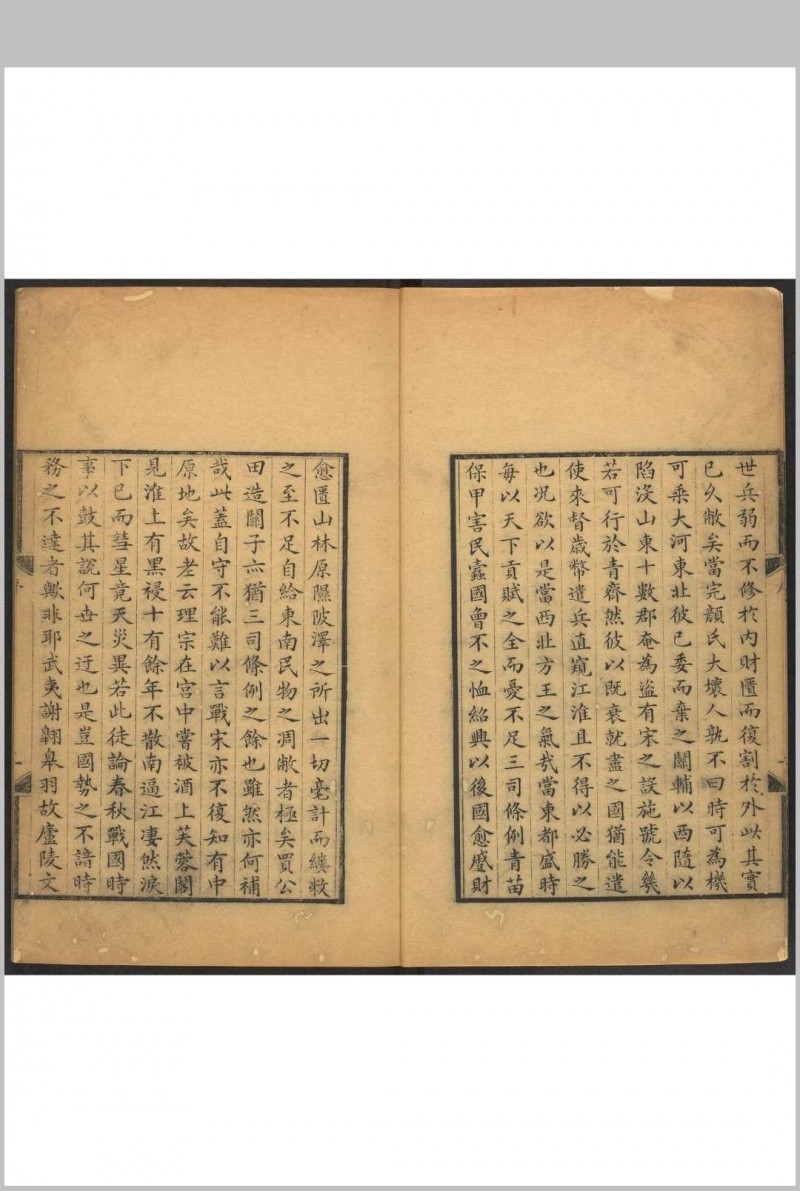 世兵弱而不修扵内財匱而復割扵外此其實
已久敝矣當完顔氏大壞人孰不曰時可為機
可乘大河東北彼已委而棄之關輔以西隨以
陷沒山東十數郡奄為盜有宋之設施號令幾
若可行於青齊然彼以既衰就盡之國猶能遣
使來督歲幣遣兵直窺江淮且不得以必勝之
也况欲以是當西北方王之氣哉當東都盛時
每以天下貢賦之全而憂不足三司條例青苗
保甲害民蠹國曾不之恤紹興以後國愈蹙財
愈匱山林原隰陂澤之所出一切毫計而縷收
之至不足自給東南民物之凋敝者極矣買公
田造關子亦猶三司條例之餘也雖然亦何補
哉此蓋自守不能難以言戰宋亦不復知有中
原地矣故老云理宗在宫中嘗被酒上芙蓉閣
見淮上有黑祲十有餘年不散南逼江凄然淚
下已而彗星竟天災異若此徒論春秋戰國時
事以鼓其説何丗之迂也是豈國勢之不諳時
務之不達者歟非耶武夷謝翺皋羽故廬陵文